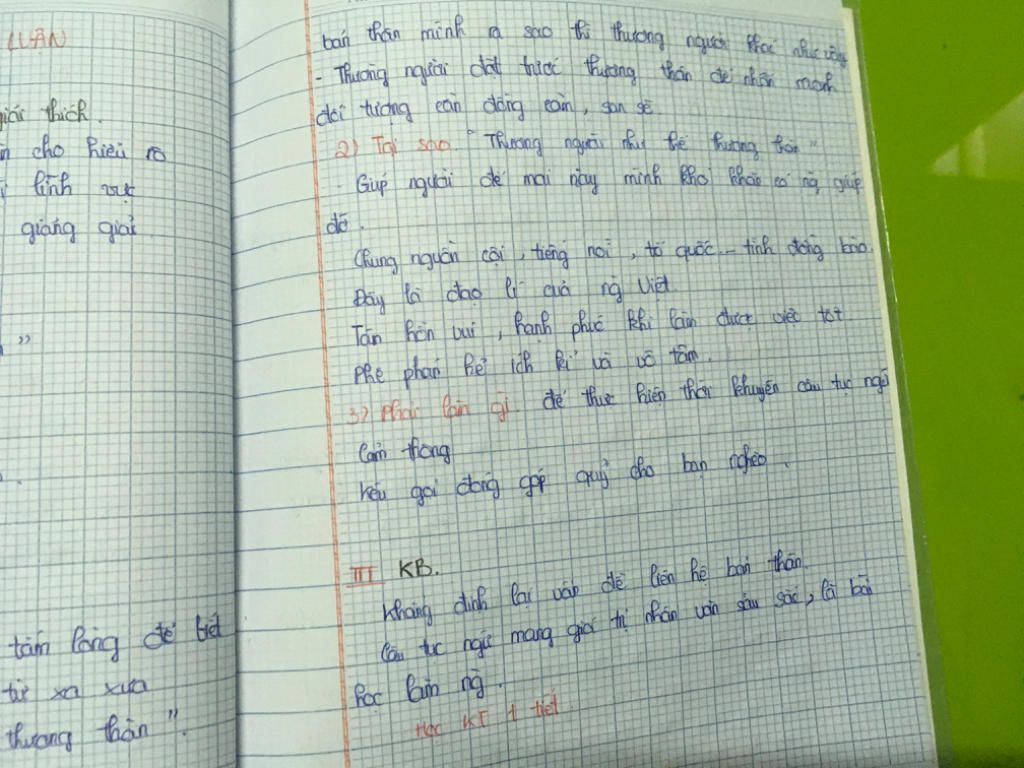 LUẬN
giải thích.
cho hiểu rõ
lĩnh vực
giảng giải.
”
tấm lòng để biết
từ xa xưa
thương thân”.
bản thân mình ra sao thì thương người khác như vậy
- Thương người đặt trước thương thân để nhấn mạnh
đối tượng cần đồng cảm, san sẻ.
2) Tại sao “Thương người như thể thương thân”
- Giúp người để mai này mình khó khăn có ng giúp
đỡ.
Chung nguồn cội, tiếng nói, tổ quốc... tình đồng bào.
Đây là đạo lí của ng Việt.
Tâm hồn vui, hạnh phúc khi làm được việc tốt.
Phê phán kẻ ích kỉ và vô tâm.
3) Phải làm gì để thực hiện thơi khuyên câu tục ngữ
Cảm thông
Kêu gọi đóng góp quỹ cho bạn nghèo.
III KB.
Khẳng định lại vấn đề liên hệ bản thân.
Câu tục ngữ mang giá trị nhân văn sâu sắc, là bài
học làm ng.
Học KT 1 tiết.